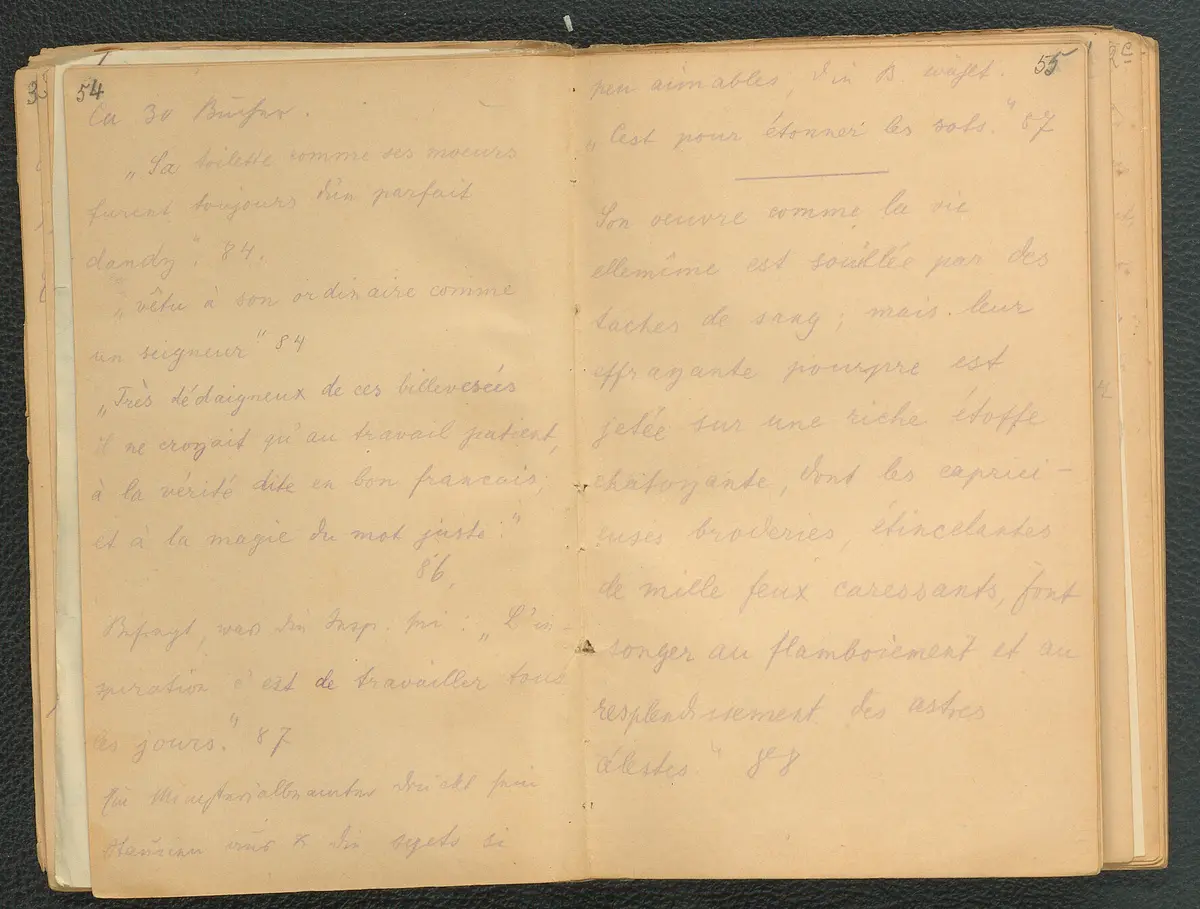 54
Ca 30 Bücher.
„Sa toilette comme ses moeurs
furent toujours d'un parfait
dandy". 84.
„vêtu à son ordinaire comme
un seigneur" 84
„Très dédaigneux de ces billevesées
il ne croyait qu'au travail patient,
à la vérité dite en bon francais,
et à la magie du mot juste."
86.
Befragt, was die Insp. sei: „L'in-
spiration c'est de travailler tous
les jours." 87
Ein Ministerialbeamter drückt sein
Staunen aus die sujets si
55
peu aimables, die B wählt.
„C'est pour étonner les sots." 87
Son oeuvre comme la vie
ellemême est souillée par des
taches de sang; mais leur
effrayante pourpre est
jetée sur une riche étoffe
chatoyante, dont les caprici-
euses broderies, étincelantes
de mille feux caressants, font
songer au flamboiement et au
resplendissement des astres
célestes." 88
3
2